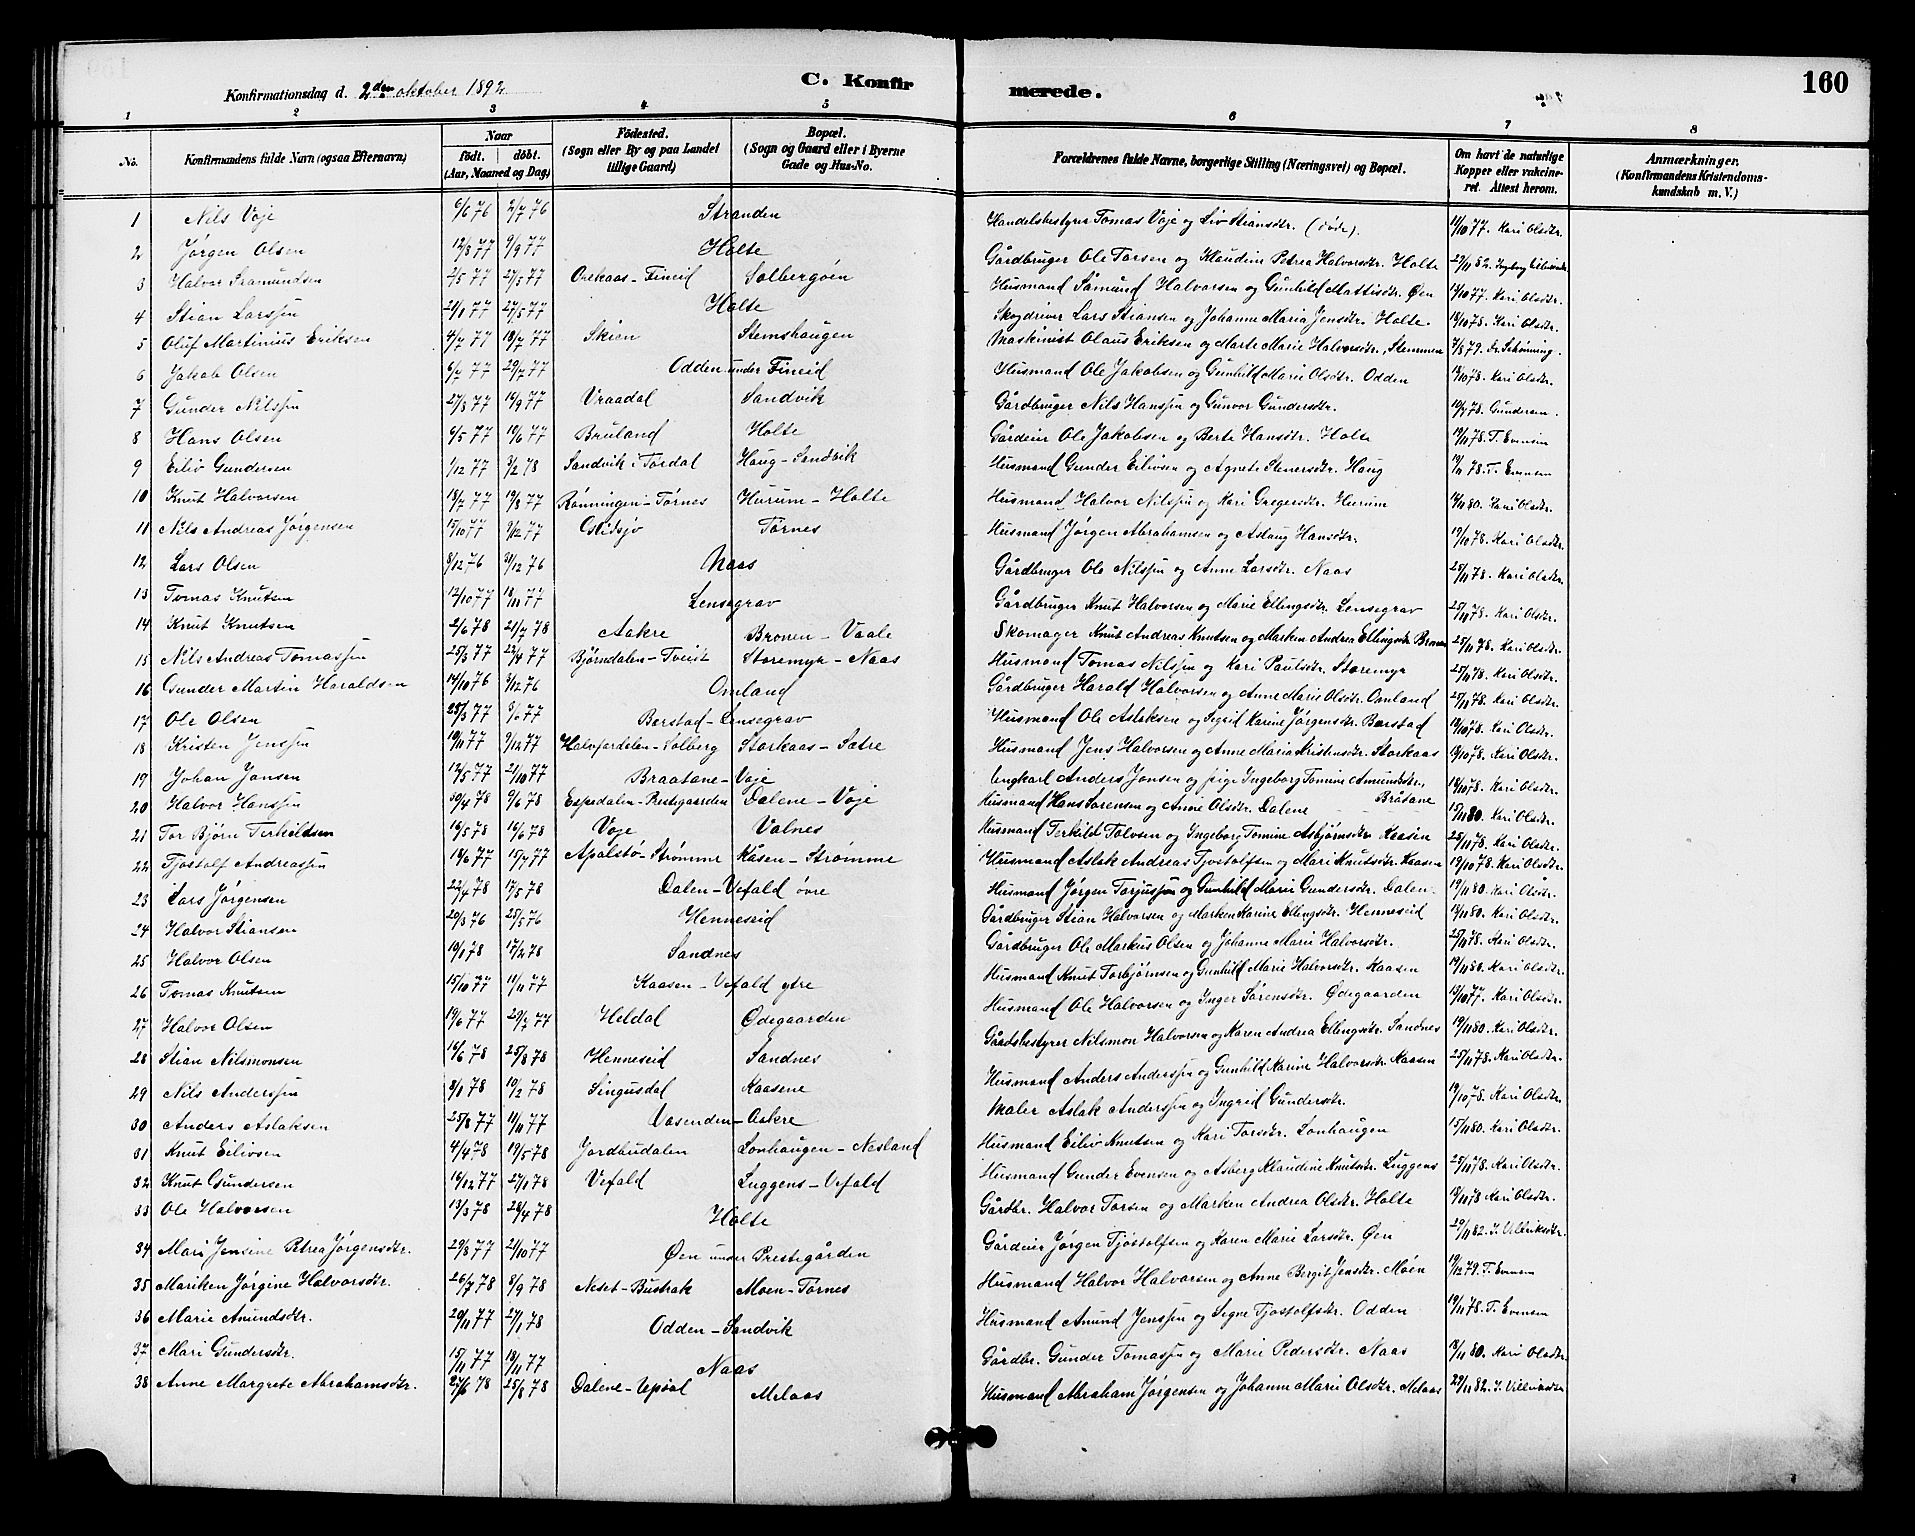 160
Konfirmationsdag d. 2den oktober 1892
C. Konfirmerede.
1 2 3 4 5 6 7 8
No. Konfirmandens fulde Navn (ogsaa Efternavn) Naar födt. döbt. (Aar, Maaned og Dag) Födested. (Sogn eller By og paa Landet tillige Gaard) Bopæl. (Sogn og Gaard eller i Byerne Gade og Hus-No. Forældrenes fulde Navne, borgerlige Stilling (Næringsvei) og Bopæl. Om havt de naturlige Kopper eller vakcineret. Attest herom. Anmærkninger. (Konfirmandens Kristendomskundskab m. V.)
1 Nils Voje 6/6 76 2/7 76 Stranden Handelsbestyrer Tomas Voje og Liv Stiansdtr. (døde). 11/10 77. Kari Olsdtr.
2 Jørgen Olsen 12/8 77 9/9 77 Holte Gårdbruger Ole Torsen og Klaudine Petrea Halvorsdtr. Holte
3 Halvor Saamundsen 2/5 77 27/5 77 Fineid Solbergøen Husmand Såmund Halvorsen og Gunhild Mattisdtr. Øen 11/10 77. Kari Olsdtr.
4 Stian Larssen 27/5 77 Holte Skogdriver Lars Stiansen og Johanne Maria Jensdtr. Holte. 18/10 78. Kari Olsdtr.
5 Oluf Martinius Eriksen 4/7 77 18/7 77 Skien Stemshaugen Maskinist Olaus Eriksen og Marte Marie Halvorsdtr., Stemmen 7/8 79. Dr. Schönning.
6 Jakob Olsen 6/7 77 29/7 77 Odden under Fineid Husmand Ole Jakobsen og Gunhild Marie Olsdtr. Odden 18/10 78. Kari Olsdtr.
7 Gunder Nilssen 27/8 77 16/9 77 Vraadal Sandvik Gårdbruger Nils Hanssen og Gunvor Gundersdtr.
8 Hans Olsen 6/5 77 10/6 77 Bruland Holte Gårdeier Ole Jakobsen og Berte Hansdtr. Holte 19/11 78. T. Evensen
9 Eiliv Gundersen 1/12 77 3/2 78 Sandvik i Tördal Haug-Sandvik Husmand Gunder Eilivsen og Agnete Stenersdtr. Haug 19/11 78. T. Evensen
10 Knut Halvorsen 18/7 77 19/8 77 Rønningen-Tørnes Hurum-Holte Husmand Halvor Nilssen og Kari Gregersdtr. Hurum Kari Olsdtr.
11 Nils Andreas Jørgensen 15/10 77 9/12 77 Tørnes Husmand Jørgen Abrahamsen og Aslaug Hansdtr. 19/10 78. Kari Olsdtr.
12 Lars Olsen 8/12 76 31/12 76 Naas Gårdbruger Ole Nilssen og Anne Larsdtr. Naas 25/11 78. Kari Olsdtr.
13 Tomas Knutsen 12/10 77 18/11 77 Lensegrav Gårdbruger Knut Halvorsen og Marie Ellingsdtr. Lensegrav 25/11 78. Kari Olsdtr.
14 Knut Knutsen 2/6 78 21/7 78 Aakre Bronen-Vaale Skomager Knut Andreas Knutsen og Marken Andrea Ellingsdtr Bronen 25/11 78. Kari Olsdtr.
15 Nils Andreas Tomassen 25/3 77 22/4 77 Björndalen-Tveit Storemyr-Naas Husmand Tomas Nilssen og Kari Paulsdtr. Storemyr 25/11 78. Kari Olsdtr.
16 Gunder Martin Haraldsen 14/10 76 3/12 76 Omland Gårdbruger Harald Halvorsen og Anne Marie Olsdtr. Omland 25/11 78. Kari Olsdtr.
17 Ole Olsen 25/3 77 3/6 77 Berstad-Lensegrav Husmand Ole Aslaksen og Sigrid Karine Jørgensdtr. Barstad 18/10 78. Kari Olsdtr.
18 Kristen Jenssen 10/11 77 9/12 77 Halvferdalen-Solberg Storkaas-Sætre Husmand Jens Halvorsen og Anne Maria Kristensdtr. Storkaas 18/10 78. Kari Olsdtr.
19 Johan Jansen 12/5 77 21/10 77 Braatane-Voje Ungkarl Anders Jonsen og pige Ingeborg Tomine Amundsdtr. Bråtane 18/10 78. Kari Olsdtr.
20 Halvor Hanssen 30/4 78 9/6 78 Espedalen-Prestegaarden Dalene-Voje Husmand Hans Sørensen og Anne Olsdtr. Dalene 15/11 80. Kari Olsdtr.
21 Tor Björn Terkildsen 16/5 78 16/6 78 Voje Valnes Husmand Terkild Tolvsen og Ingeborg Tomine Asbjørnsdtr Kaasen 25/11 78. Kari Olsdtr.
22 Tjostolf Andreassen 14/6 77 15/7 77 Apålstø-Strømme Kåsen-Strømme Husmand Aslak Andreas Tjostolfsen og Mari Knutsdtr. Kaasen 19/10 78. Kari Olsdtr.
23 Lars Jørgensen 22/4 78 17/5 78 Dalen-Vefald övre Husmand Jörgen Torjussen og Gunhild Marie Gundersdtr. Dalen. 19/11 80. Kari Olsdtr.
24 Halvor Stiansen 20/3 76 25/5 76 Henneseid Gårdbruger Stian Halvorsen og Marken Karine Ellingsdtr. Henneseid Kari Olsdtr.
25 Halvor Olsen 19/1 78 17/2 78 Sandnes Gårdbruger Ole Markus Olsen og Johanne Marie Halvorsdtr. 25/11 78. Kari Olsdtr.
26 Tomas Knutsen 15/10 77 11/11 77 Kaasen-Vefald ytre Husmand Knut Torbjørnsen og Gunhild Marie Halvorsdtr. Kaasen 19/11 80. Kari Olsdtr.
27 Halvor Olsen 19/6 77 29/7 77 Heldal Ødegaarden Husmand Ole Halvorsen og Inger Sørensdtr. Ødegaarden 13/10 77. Kari Olsdtr.
28 Stian Nilsmonsen 16/6 78 25/8 78 Henneseid Sandnes Gårdsbestyrer Nilsmon Halvorsen og Karen Andrea Ellingsdtr. Sandnes 19/11 80. Kari Olsdtr.
29 Nils Anderssen 8/1 78 10/2 78 Singusdal Kaasene Husmand Anders Anderssen og Gunhild Karine Halvorsdtr. Kaasen 25/11 78. Kari Olsdtr.
30 Anders Aslaksen 25/8 77 11/11 77 Vasenden-Aakre Maler Aslak Anderssen og Ingrid Gundersdtr. 19/10 78. Kari Olsdtr.
31 Knut Eilivsen 4/4 78 19/5 78 Jordbudalen Lonhaugen-Nesland Husmand Eiliv Knutsen og Kari Torsdtr. Lonhaugen 15/11 80. Kari Olsdtr.
32 Knut Gundersen 16/12 77 27/1 78 Vefald Luggens-Vefald Husmand Gunder Evensen og Asberg Klaudine Knutsdtr. Luggens 25/11 78. Kari Olsdtr.
33 Ole Halvorsen 13/3 78 28/4 78 Holte Gårdbr. Halvor Torsen og Marken Andrea Olsdtr. Holte 18/10 78 Kari Olsdtr.
34 Mari Jensine Petrea Jørgensdtr. 29/8 77 21/10 77 Øen under Prestegården Gårdeier Jørgen Tjostolfsen og Karen Marie Larsdtr. Øen
35 Mariken Jørgine Halvorsdtr. 26/7 78 8/9 78 Neset-Bustrak Moen-Tørnes Husmand Halvor Halvorsen og Anne Bergit Jensdtr. Moen 19/12 79. T. Evensen
36 Marie Amundsdtr. 20/11 77 27/1 78 Odden-Sandvik Husmand Amund Jenssen og Signe Tjostolfsdtr. Odden 19/11 78. T. Evensen
37 Mari Gundersdtr. 15/11 77 18/11 77 Naas Gårdbr. Gunder Tomassen og Marie Pedersdtr. Naas Kari Olsdtr.
38 Anne Margrete Abrahamsdtr. 27/6 78 25/8 78 Dalene Melaas Husmand Abraham Jørgensen og Johanne Marie Olsdtr. Melaas